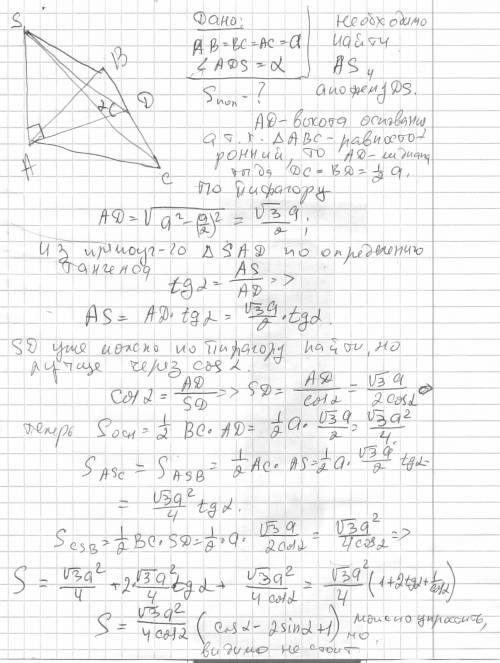 Дано:
AB=BC=AC=a
∠ADS=α
Sпол-?
Необходимо
найти
AS и
апофему DS.
S
B
D
α
A
C
AD-высота основания
а т.к. △ABC-равносто-
ронний, то AD-медиана
тогда DC=BD=½a.
По Пифагору
AD=√(a²-(a/2)²) = √3a/2;
Из прямоуг-го △SAD по определению
тангенса
tgα = AS/AD =>
AS = AD·tgα = √3a/2·tgα.
SD уже можно по Пифагору найти, но
лучше через cosα.
cosα = AD/SD => SD = AD/cosα = √3a/2cosα =>
теперь Sосн = ½ BC·AD = ½a·√3a/2 = √3a²/4.
S ASC = S ASB = ½AC·AS = ½a·√3a/2 tgα=
= √3a²/4 tgα.
S CSB = ½BC·SD = ½·a·√3a/2cosα = √3a²/4cosα =>
S = √3a²/4 + 2·√3a²/4 tgα + √3a²/4cosα = √3a²/4 (1+2tgα+1/cosα)
S = √3a²/4cosα (cosα-2sinα+1) можно упростить,
но,
видимо не стоит